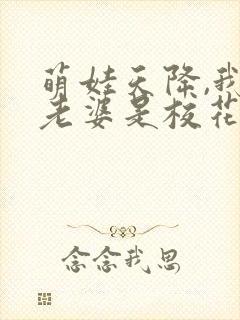 萌娃天降,我
老婆是校花
念念我思